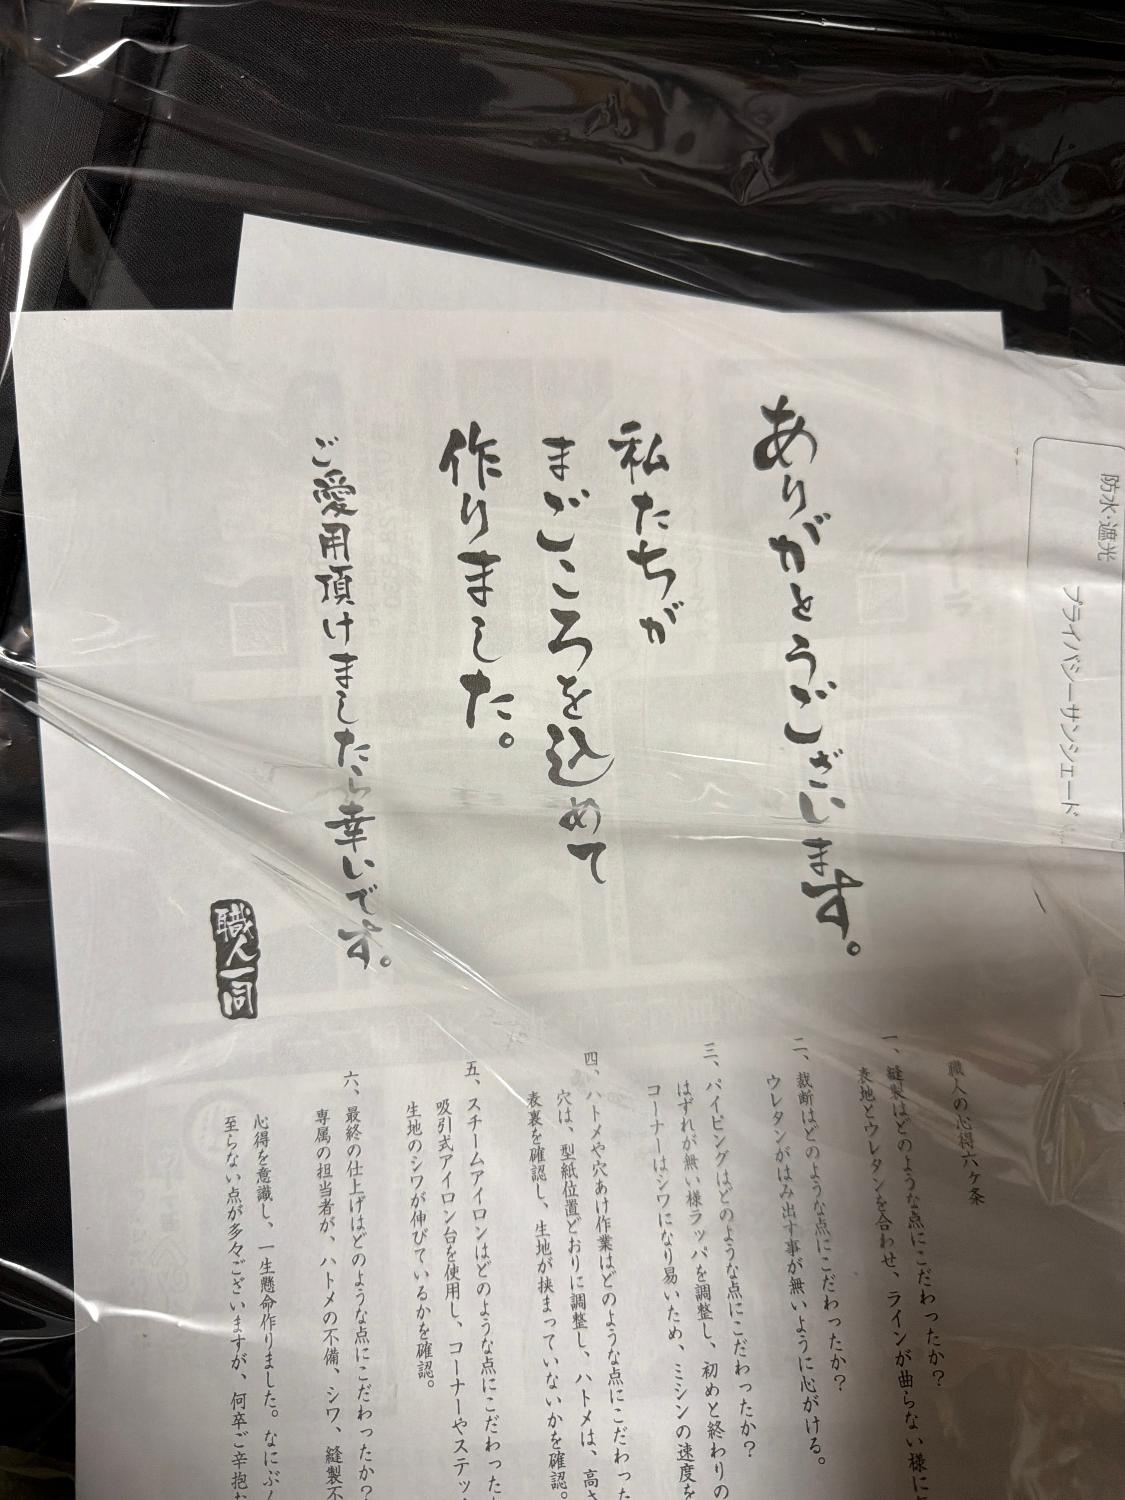 防水・遮光
プライバシーサンシェード
ありがとうございます。
私たちが
まごころを込めて
作りました。
ご愛用頂けましたら幸いです。
職人一同
職人の心得六ケ条
一、縫製はどのような点にこだわったか?
表地とウレタンを合わせ、ラインが曲らない様に
二、裁断はどのような点にこだわったか?
ウレタンがはみ出す事が無いように心がける。
三、パイピングはどのような点にこだわったか?
はずれが無い様ラッパを調整し、初めと終わりの
コーナーはシワになり易いため、ミシンの速度を
四、ハトメや穴あけ作業はどのような点にこだわった
穴は、型紙位置どおりに調整し、ハトメは、高さ
表裏を確認し、生地が挟まっていないかを確認。
五、スチームアイロンはどのような点にこだわった
吸引式アイロン台を使用し、コーナーやステッ
生地のシワが伸びているかを確認。
六、最終の仕上げはどのような点にこだわったか?
専属の担当者が、ハトメの不備、シワ、縫製不
心得を意識し、一生懸命作りました。なにぶん
至らない点が多々ございますが、何卒ご辛抱